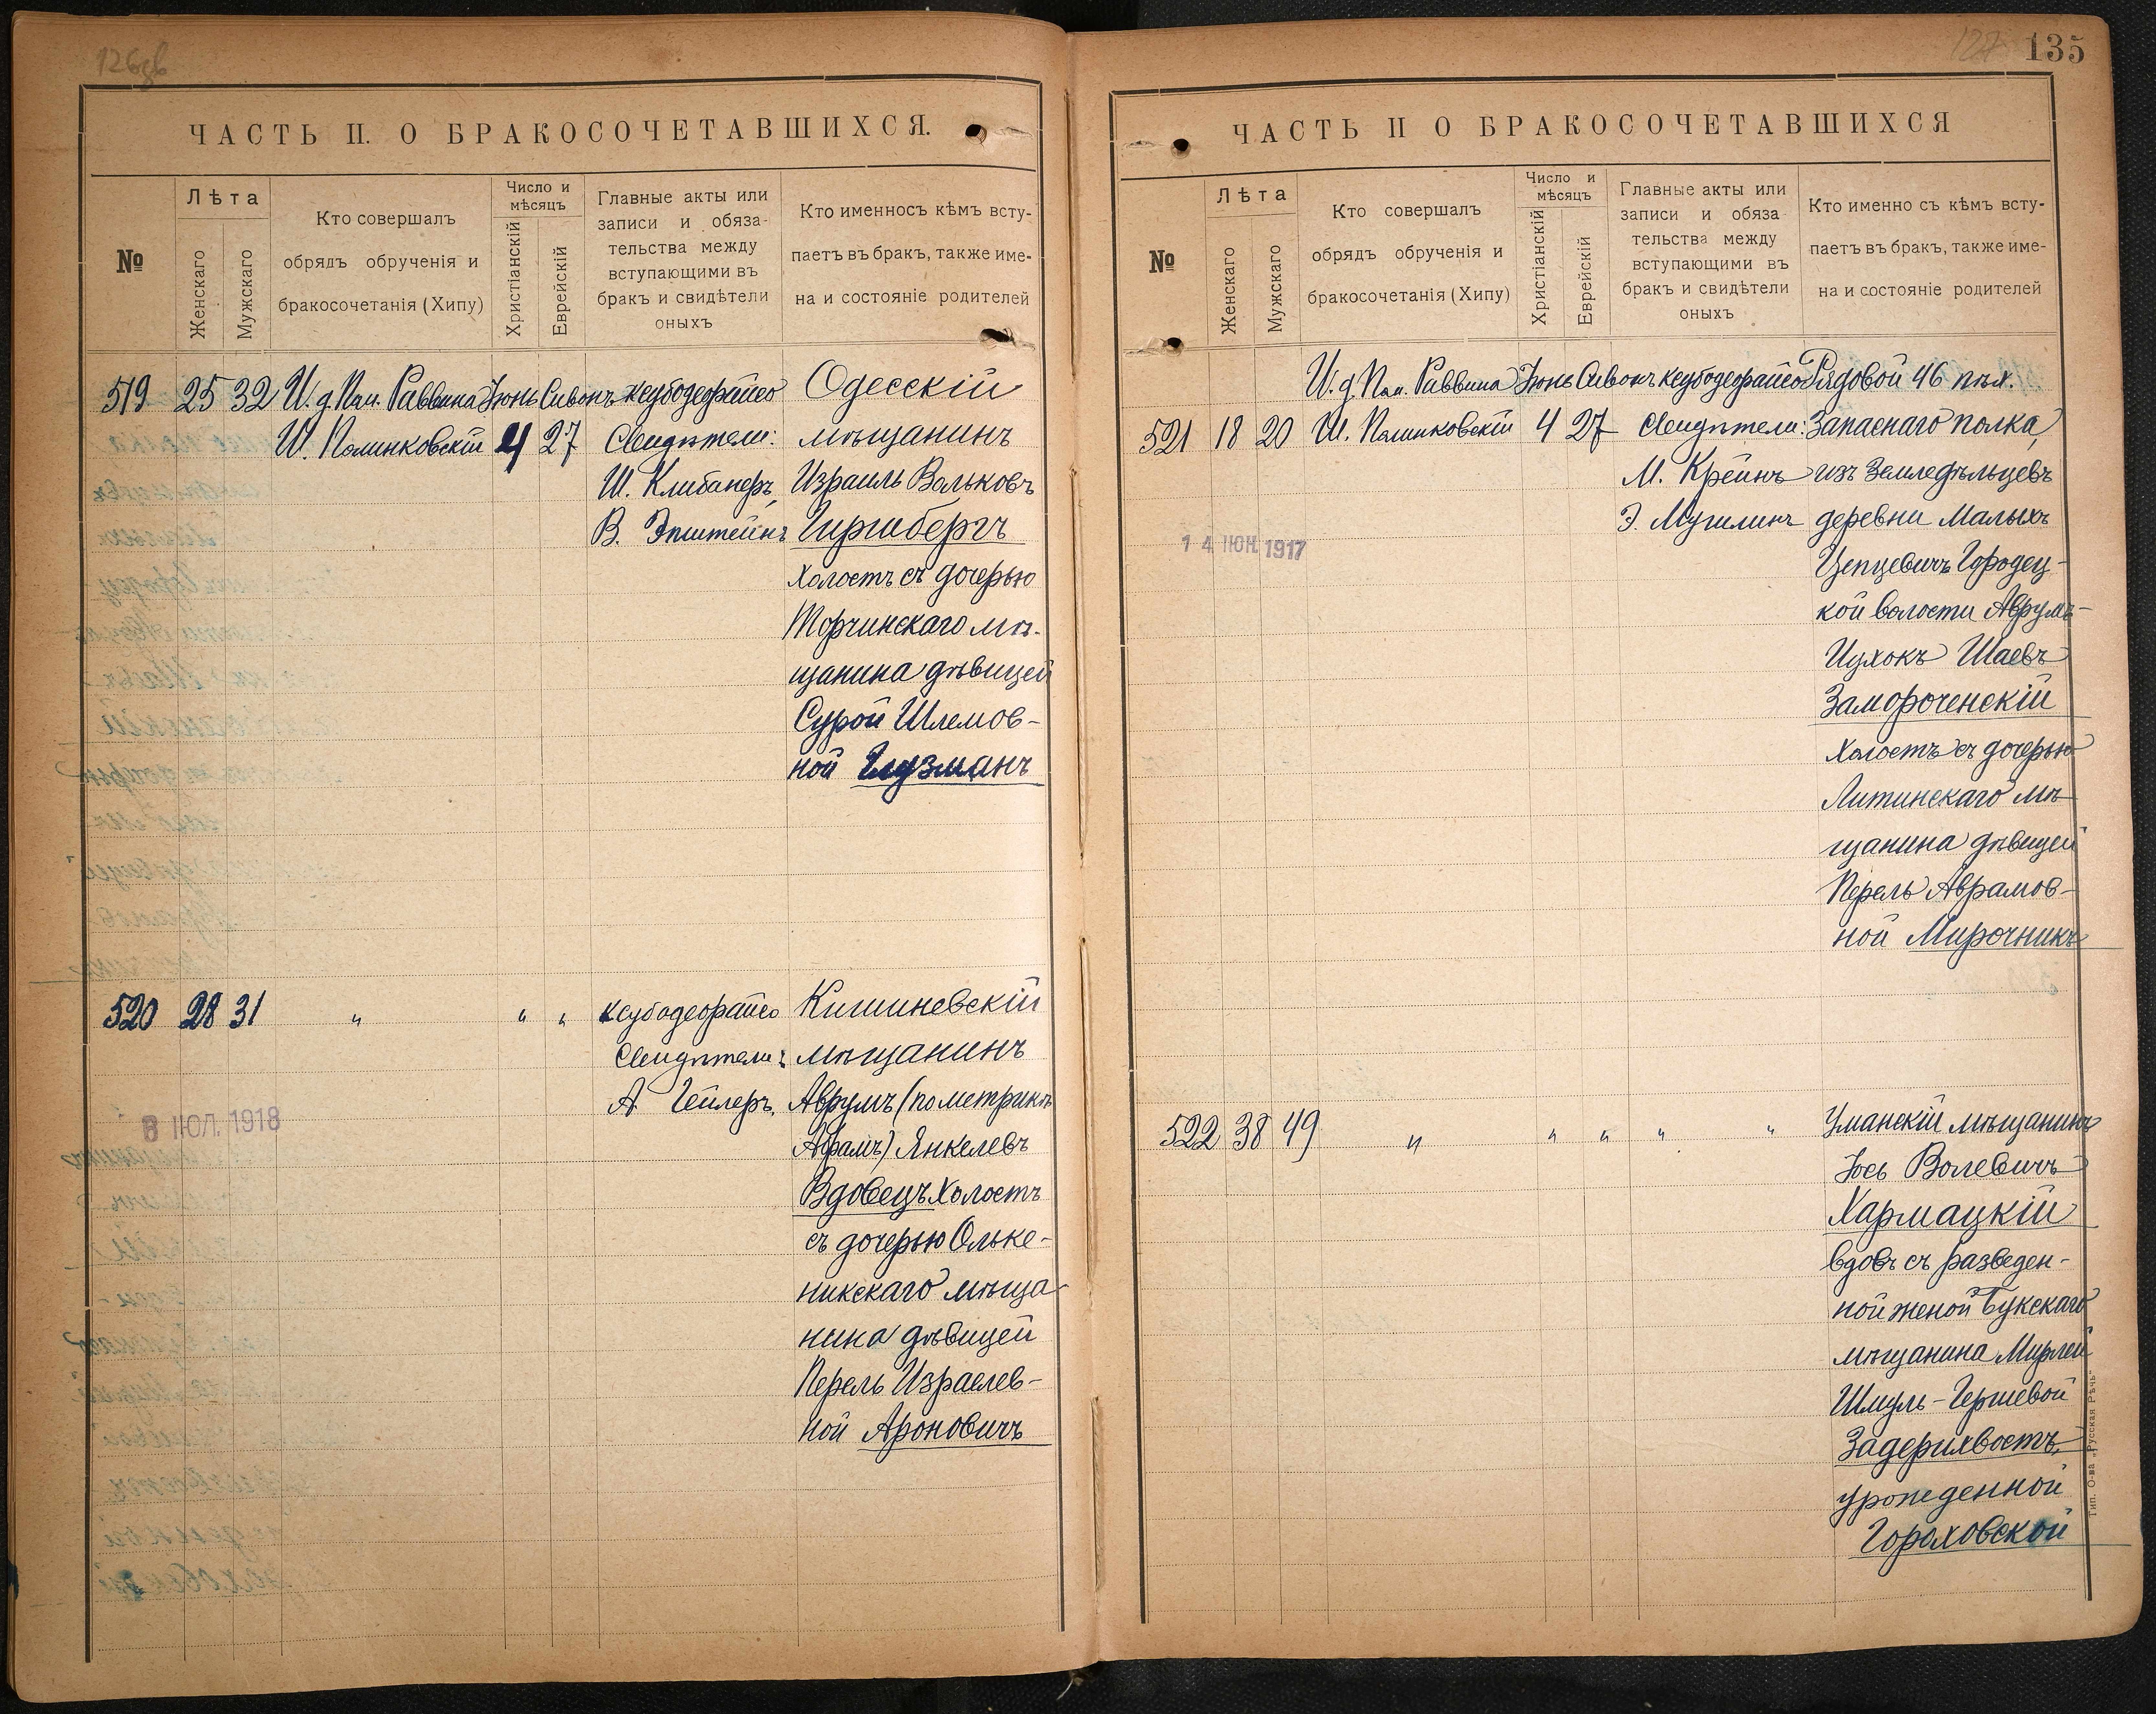 126об
ЧАСТЬ II. О БРАКОСОЧЕТАВШИХСЯ.
№
Лѣта
Женскаго
Мужскаго
Кто совершалъ
обрядъ обрученія и
бракосочетанія (Хипу)
Число и
мѣсяцъ
Христіанскій
Еврейскій
Главные акты или
записи и обяза-
тельства между
вступающими въ
бракъ и свидѣтели
оныхъ
Кто именносъ кѣмъ всту-
паетъ въ бракъ, также име-
на и состояніе родителей
519 25 32 И. д. Пом. Раввина Іюнь Сивонъ Ксубодеорайсо Одесскій
Ш. Полинковскій 4 27 Свидѣтели: мѣщанинъ
Ш. Клибанеръ, Израиль Вольковъ
В. Эпштейнъ Гиршбергъ
холостъ съ дочерью
Торчинскаго мѣ-
щанина дѣвицей
Сурой Шлемов-
ной Глузманъ
520 28 31 " " " Ксубодеорайсо Кишиневскій
Свидѣтели: мѣщанинъ
А. Гейлеръ, Аврумъ (по метрикѣ
Абрамъ) Янкелевъ
8 ІЮЛ. 1918
Вдовецъ холостъ
съ дочерью Ольке-
никскаго мѣща-
нина дѣвицей
Перель Израелев-
ной Ароновичъ
127 135
ЧАСТЬ II О БРАКОСОЧЕТАВШИХСЯ
№
Лѣта
Женскаго
Мужскаго
Кто совершалъ
обрядъ обрученія и
бракосочетанія (Хипу)
Число и
мѣсяцъ
Христіанскій
Еврейскій
Главные акты или
записи и обяза
тельства между
вступающими въ
бракъ и свидѣтели
оныхъ
Кто именно съ кѣмъ всту-
паетъ въ бракъ, также име-
на и состояніе родителей
И. д. Пом. Раввина Іюнь Сивонъ Ксубодеорайсо Рядовой 46 пѣх.
521 18 20 Ш. Полинковскій 4 27 Свидѣтели: Запаснаго полка,
М. Крейнъ изъ земледѣльцевъ
Э. Мугилинъ деревни Малыхъ
14 ІЮН. 1917
Цепцевичъ Городец-
кой волости Аврумъ-
Ицхокъ Шаевъ
Замороченскій
холостъ съ дочерью
Литинскаго мѣ-
щанина дѣвицей
Перель Аврамов-
ной Мирочникъ
522 38 49 " " " " " Уманскій мѣщанинъ
Іось Волевичъ
Хармацкій
вдовъ съ разведен-
ной женой Букскаго
мѣщанина Мирлей
Шмуль-Гершевой
Задерихвостъ,
урожденной
Гораховской
Тип. О-ва „Русская Рѣчь"